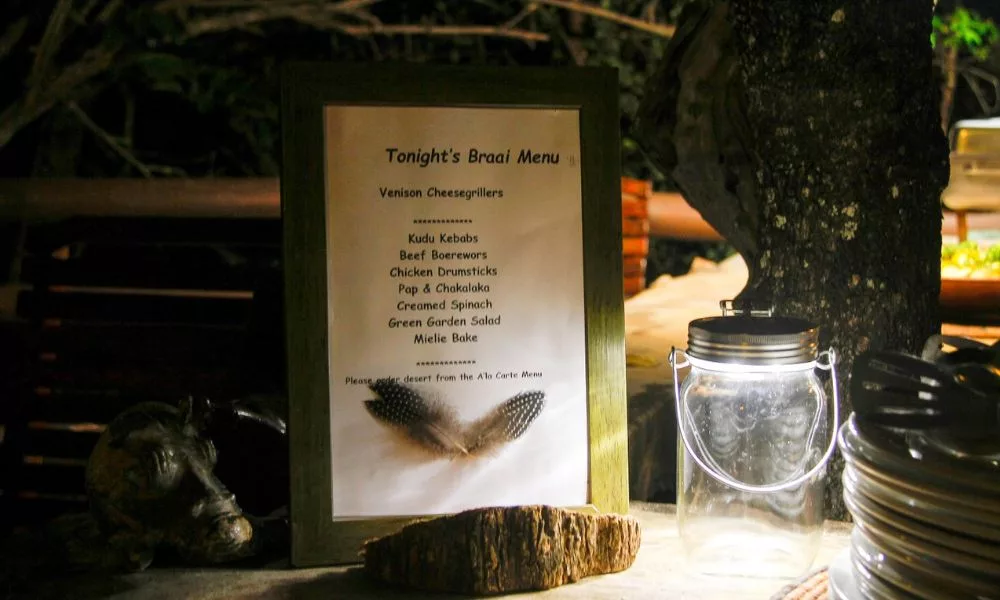 Tonight's Braai Menu
Venison Cheesegrillers
************
Kudu Kebabs
Beef Boerewors
Chicken Drumsticks
Pap & Chakalaka
Creamed Spinach
Green Garden Salad
Mielie Bake
************
Please order desert from the A'la Carte Menu